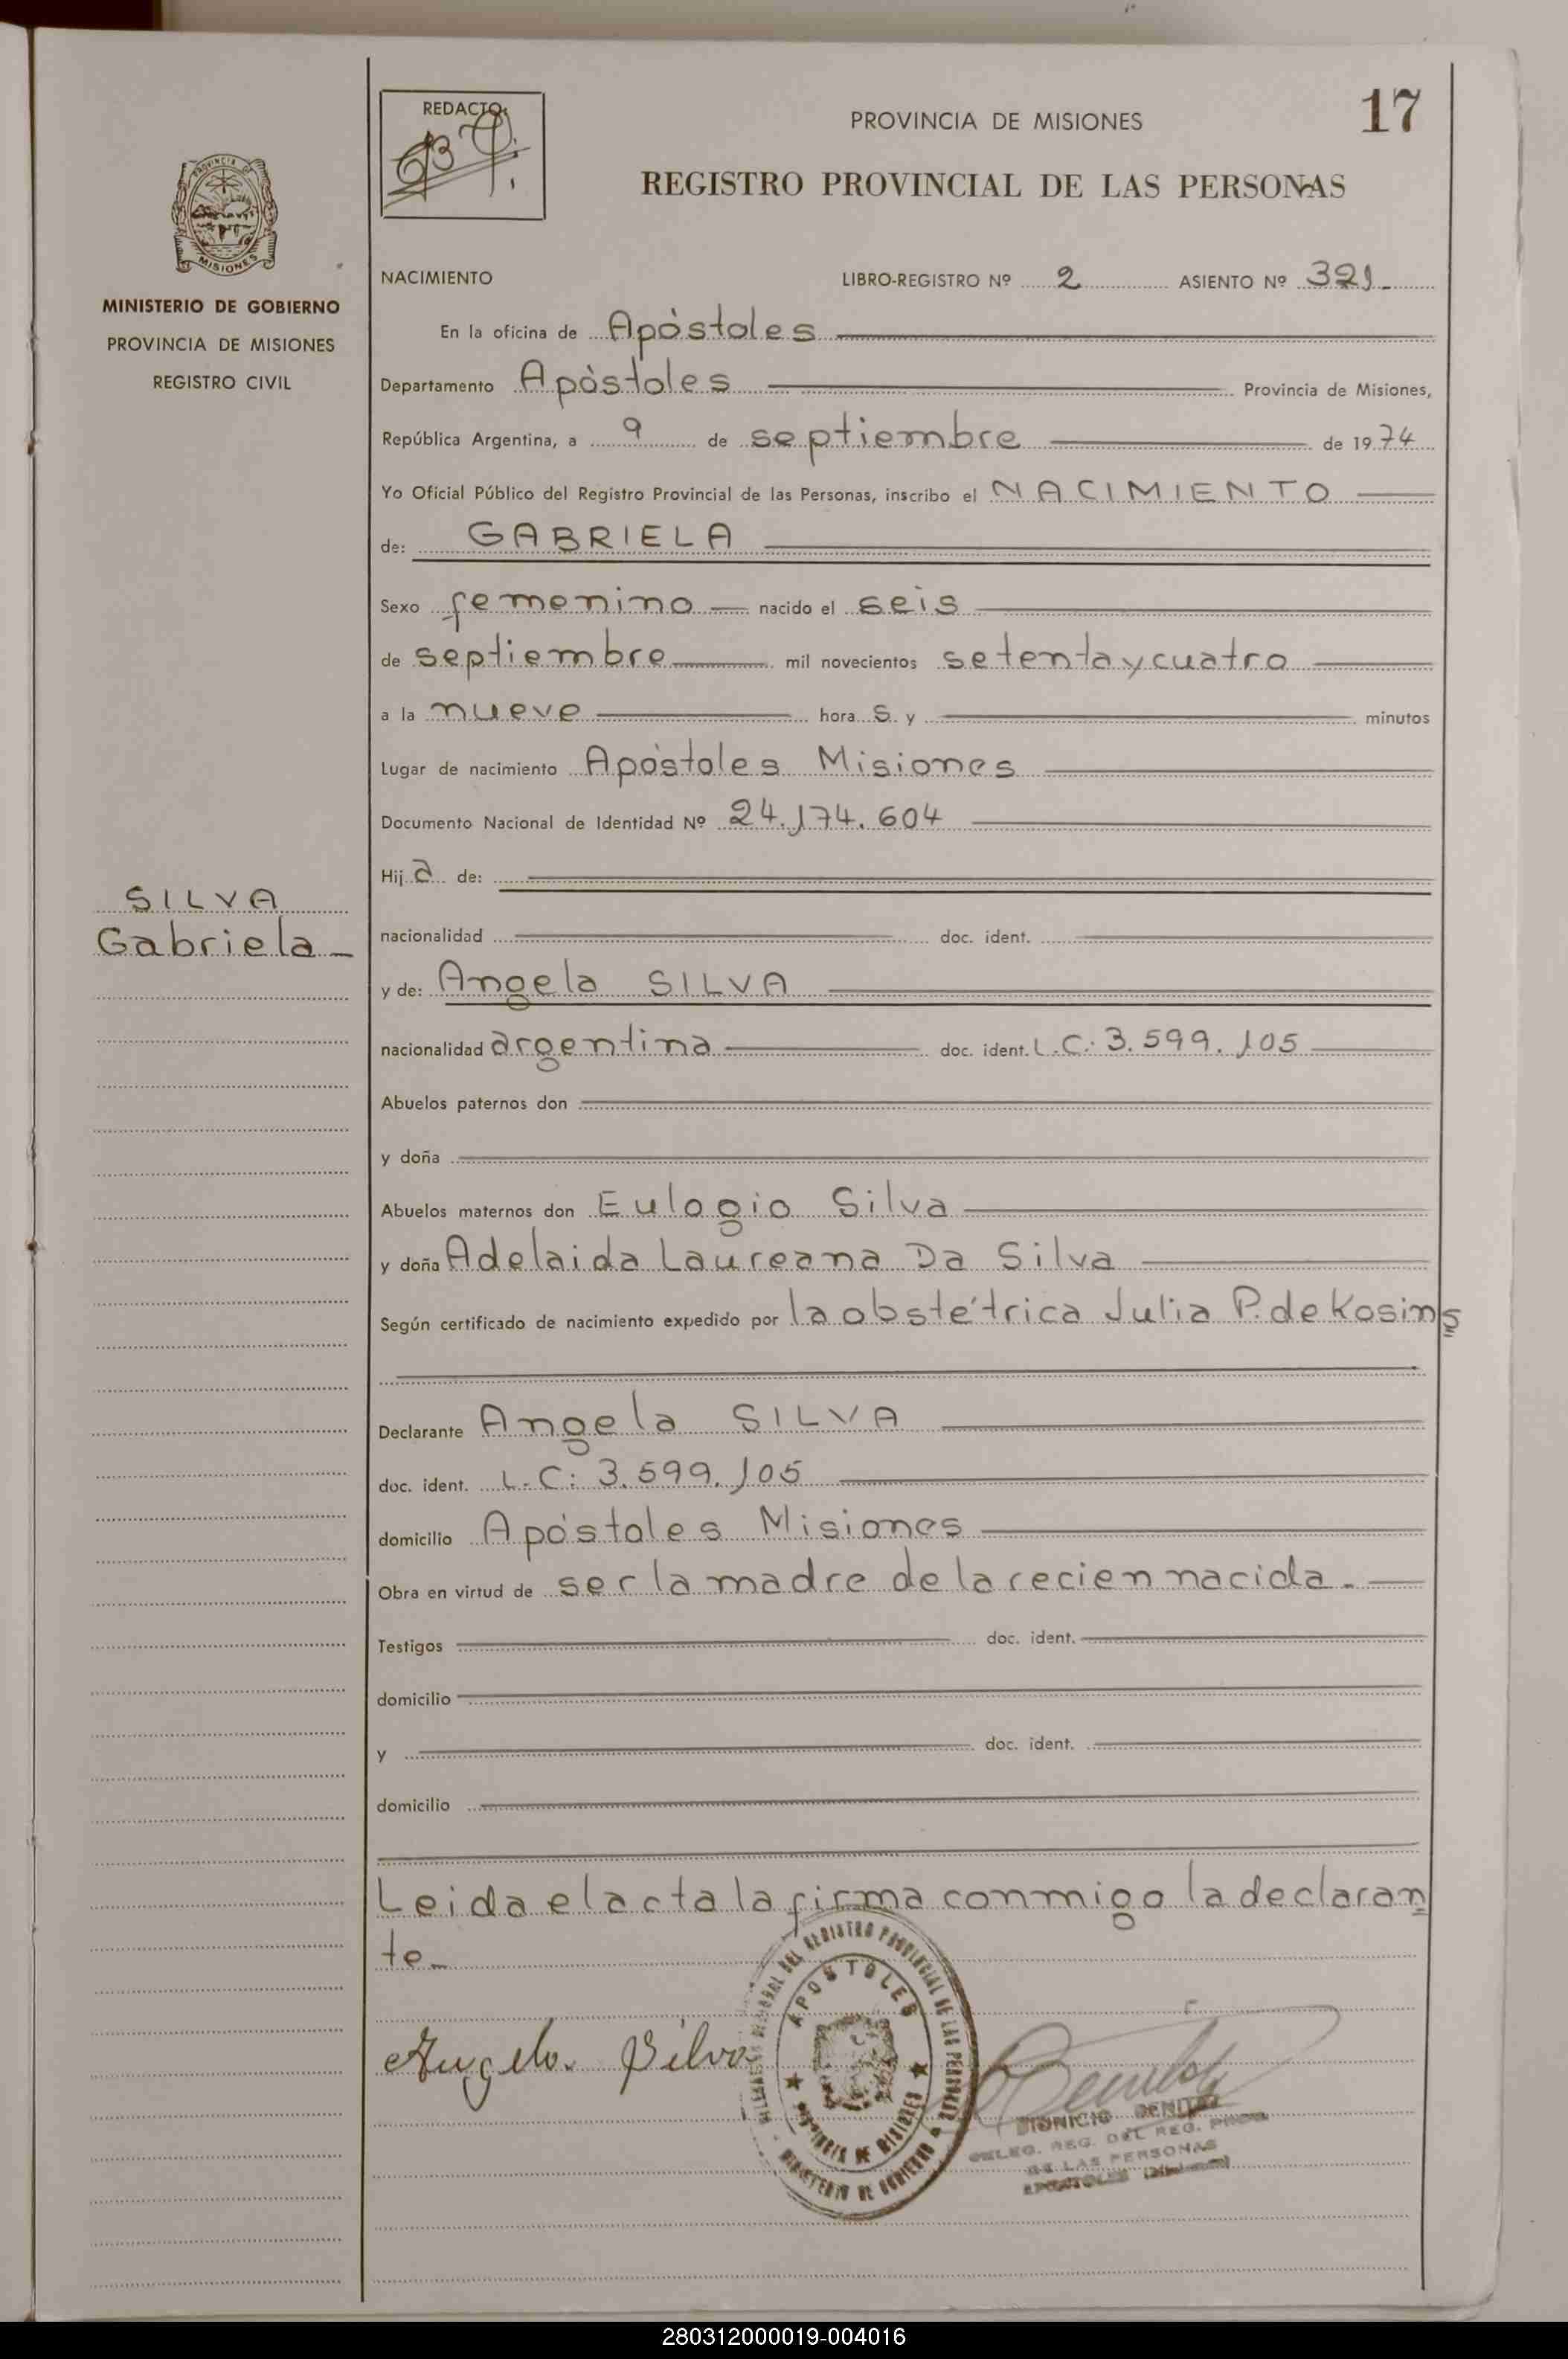 17
REDACTO:
PROVINCIA DE MISIONES
REGISTRO PROVINCIAL DE LAS PERSONAS
PROVINCIA DE
MISIONES
MINISTERIO DE GOBIERNO
PROVINCIA DE MISIONES
REGISTRO CIVIL
NACIMIENTO LIBRO-REGISTRO Nº 2 ASIENTO Nº 321
En la oficina de Apóstoles
Departamento Apóstoles Provincia de Misiones,
República Argentina, a 9 de septiembre de 1974
Yo Oficial Público del Registro Provincial de las Personas, inscribo el NACIMIENTO
de: GABRIELA
Sexo femenino nacido el seis
de septiembre mil novecientos setenta y cuatro
a la nueve hora s y minutos
Lugar de nacimiento Apóstoles Misiones
Documento Nacional de Identidad Nº 24.174.604
Hija de:
SILVA
Gabriela
nacionalidad doc. ident.
y de: Angela SILVA
nacionalidad argentina doc. ident. L.C.: 3.599.105
Abuelos paternos don
y doña
Abuelos maternos don Eulogio Silva
y doña Adelaida Laureana Da Silva
Según certificado de nacimiento expedido por la obstétrica Julia P. de Kosins
Declarante Angela SILVA
doc. ident. L.C: 3.599.105
domicilio Apóstoles Misiones
Obra en virtud de ser la madre de la recien nacida.
Testigos doc. ident.
domicilio
y doc. ident.
domicilio
Leida el acta la firma conmigo la declaran
te
Angela Silva
REGISTRO PROVINCIAL DE LAS PERSONAS
APOSTOLES
PROVINCIA DE MISIONES
MINISTERIO DE GOBIERNO
DIONICIO BENITEZ
DELEG. REG. DEL REG. PROV.
DE LAS PERSONAS
APOSTOLES (Misiones)
280312000019-004016